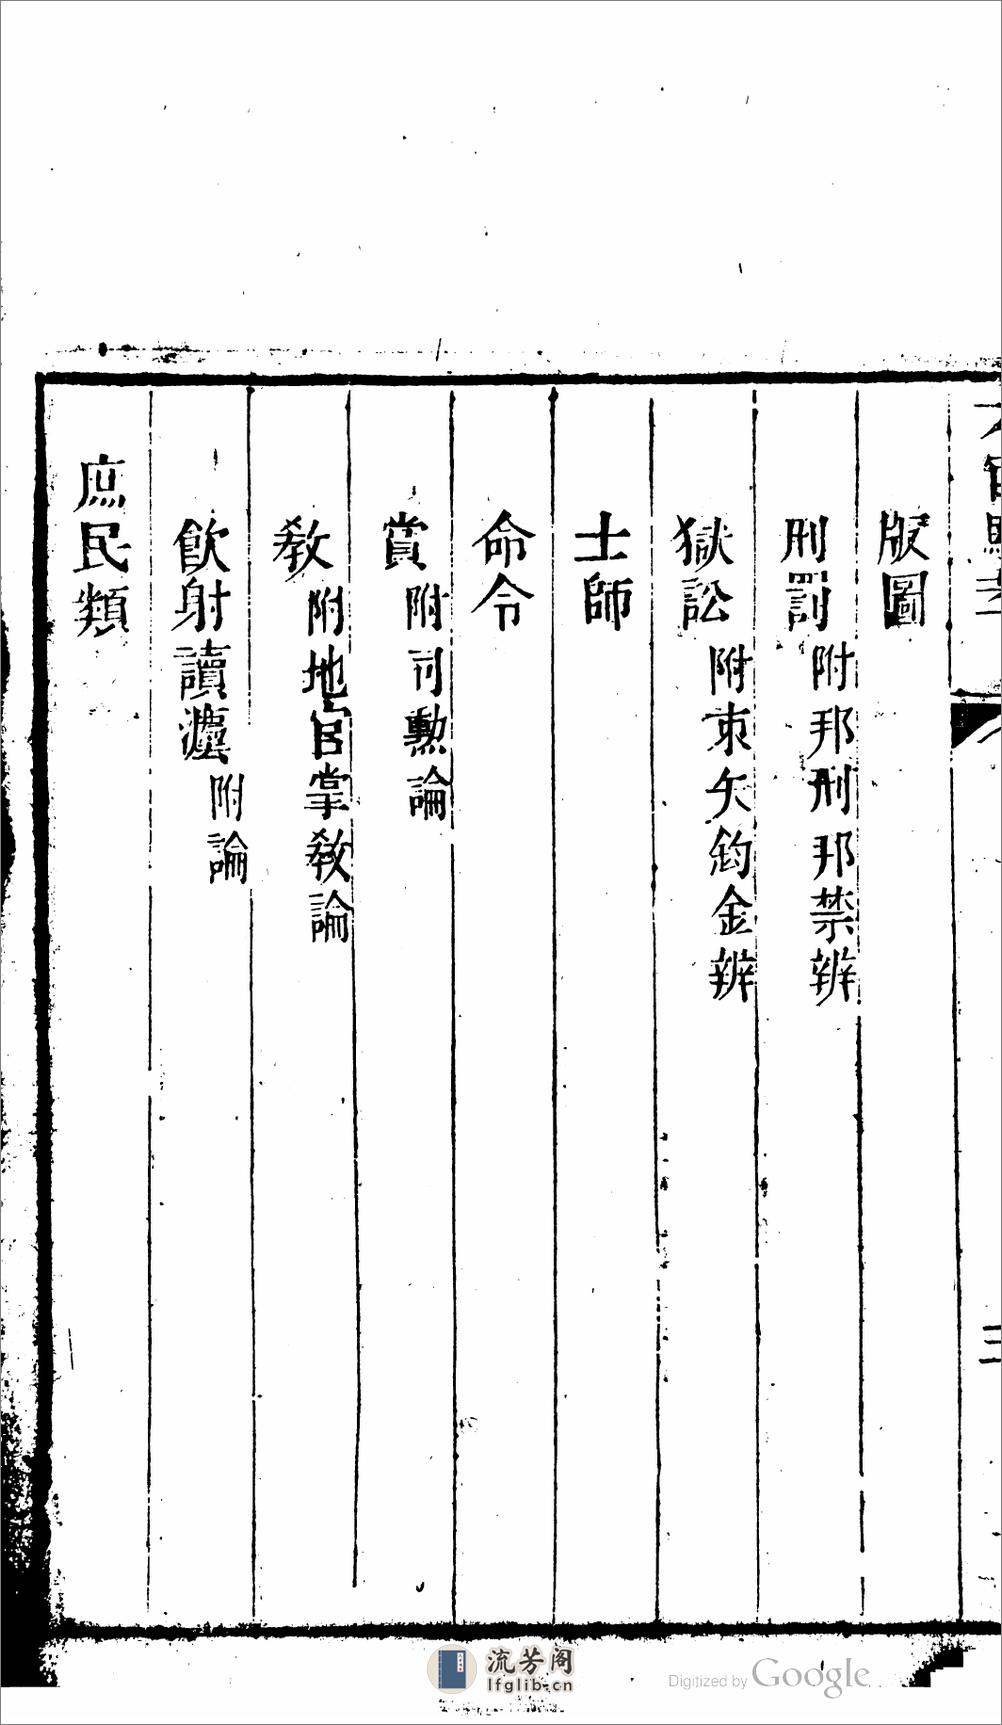 版圖
刑罰附邦刑邦禁辨
獄訟附束矢鈞金辨
士師
命令
賞附司勲論
敎附地官掌敎論
飲射讀灋附論
庶民類
三
流芳阁
lfglib.cn
Digitized by Google